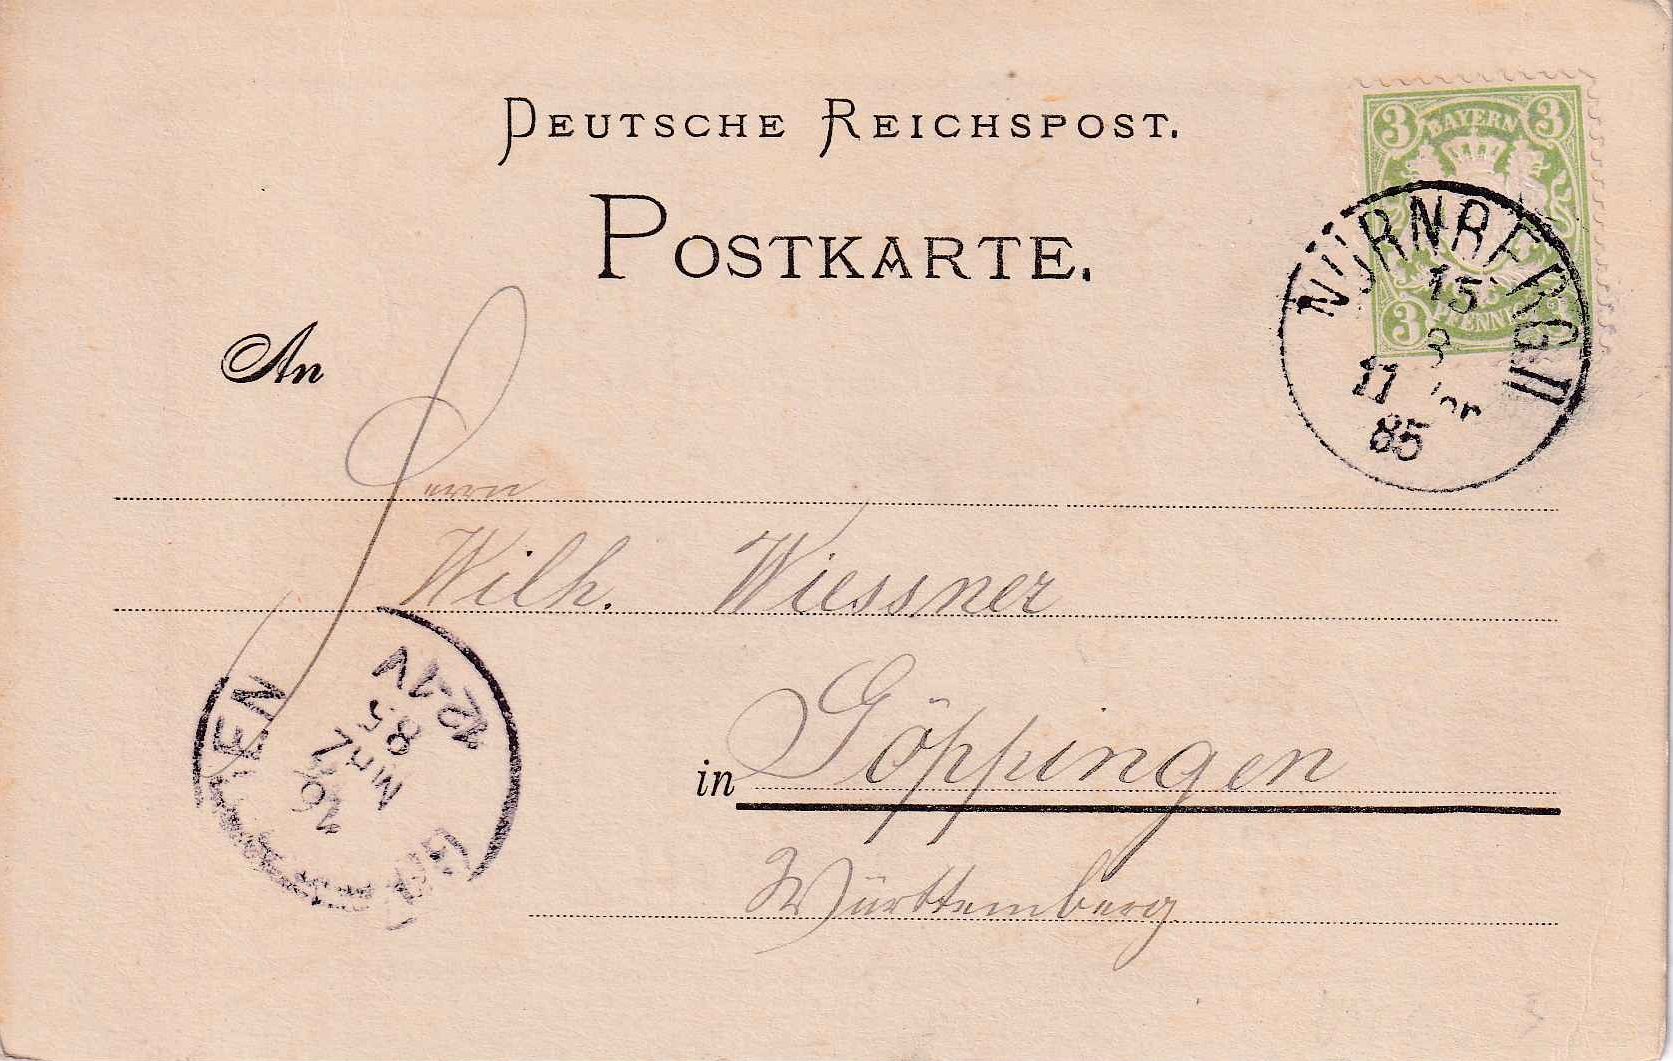 DEUTSCHE REICHSPOST.
POSTKARTE.
3 BAYERN 3
3 PFENNIG 3
NÜRNBERG II
15
3
11 Vor
85
An
Herrn
Wilh. Wiessner
in Göppingen
Württemberg
16
MRZ
85
12-1V